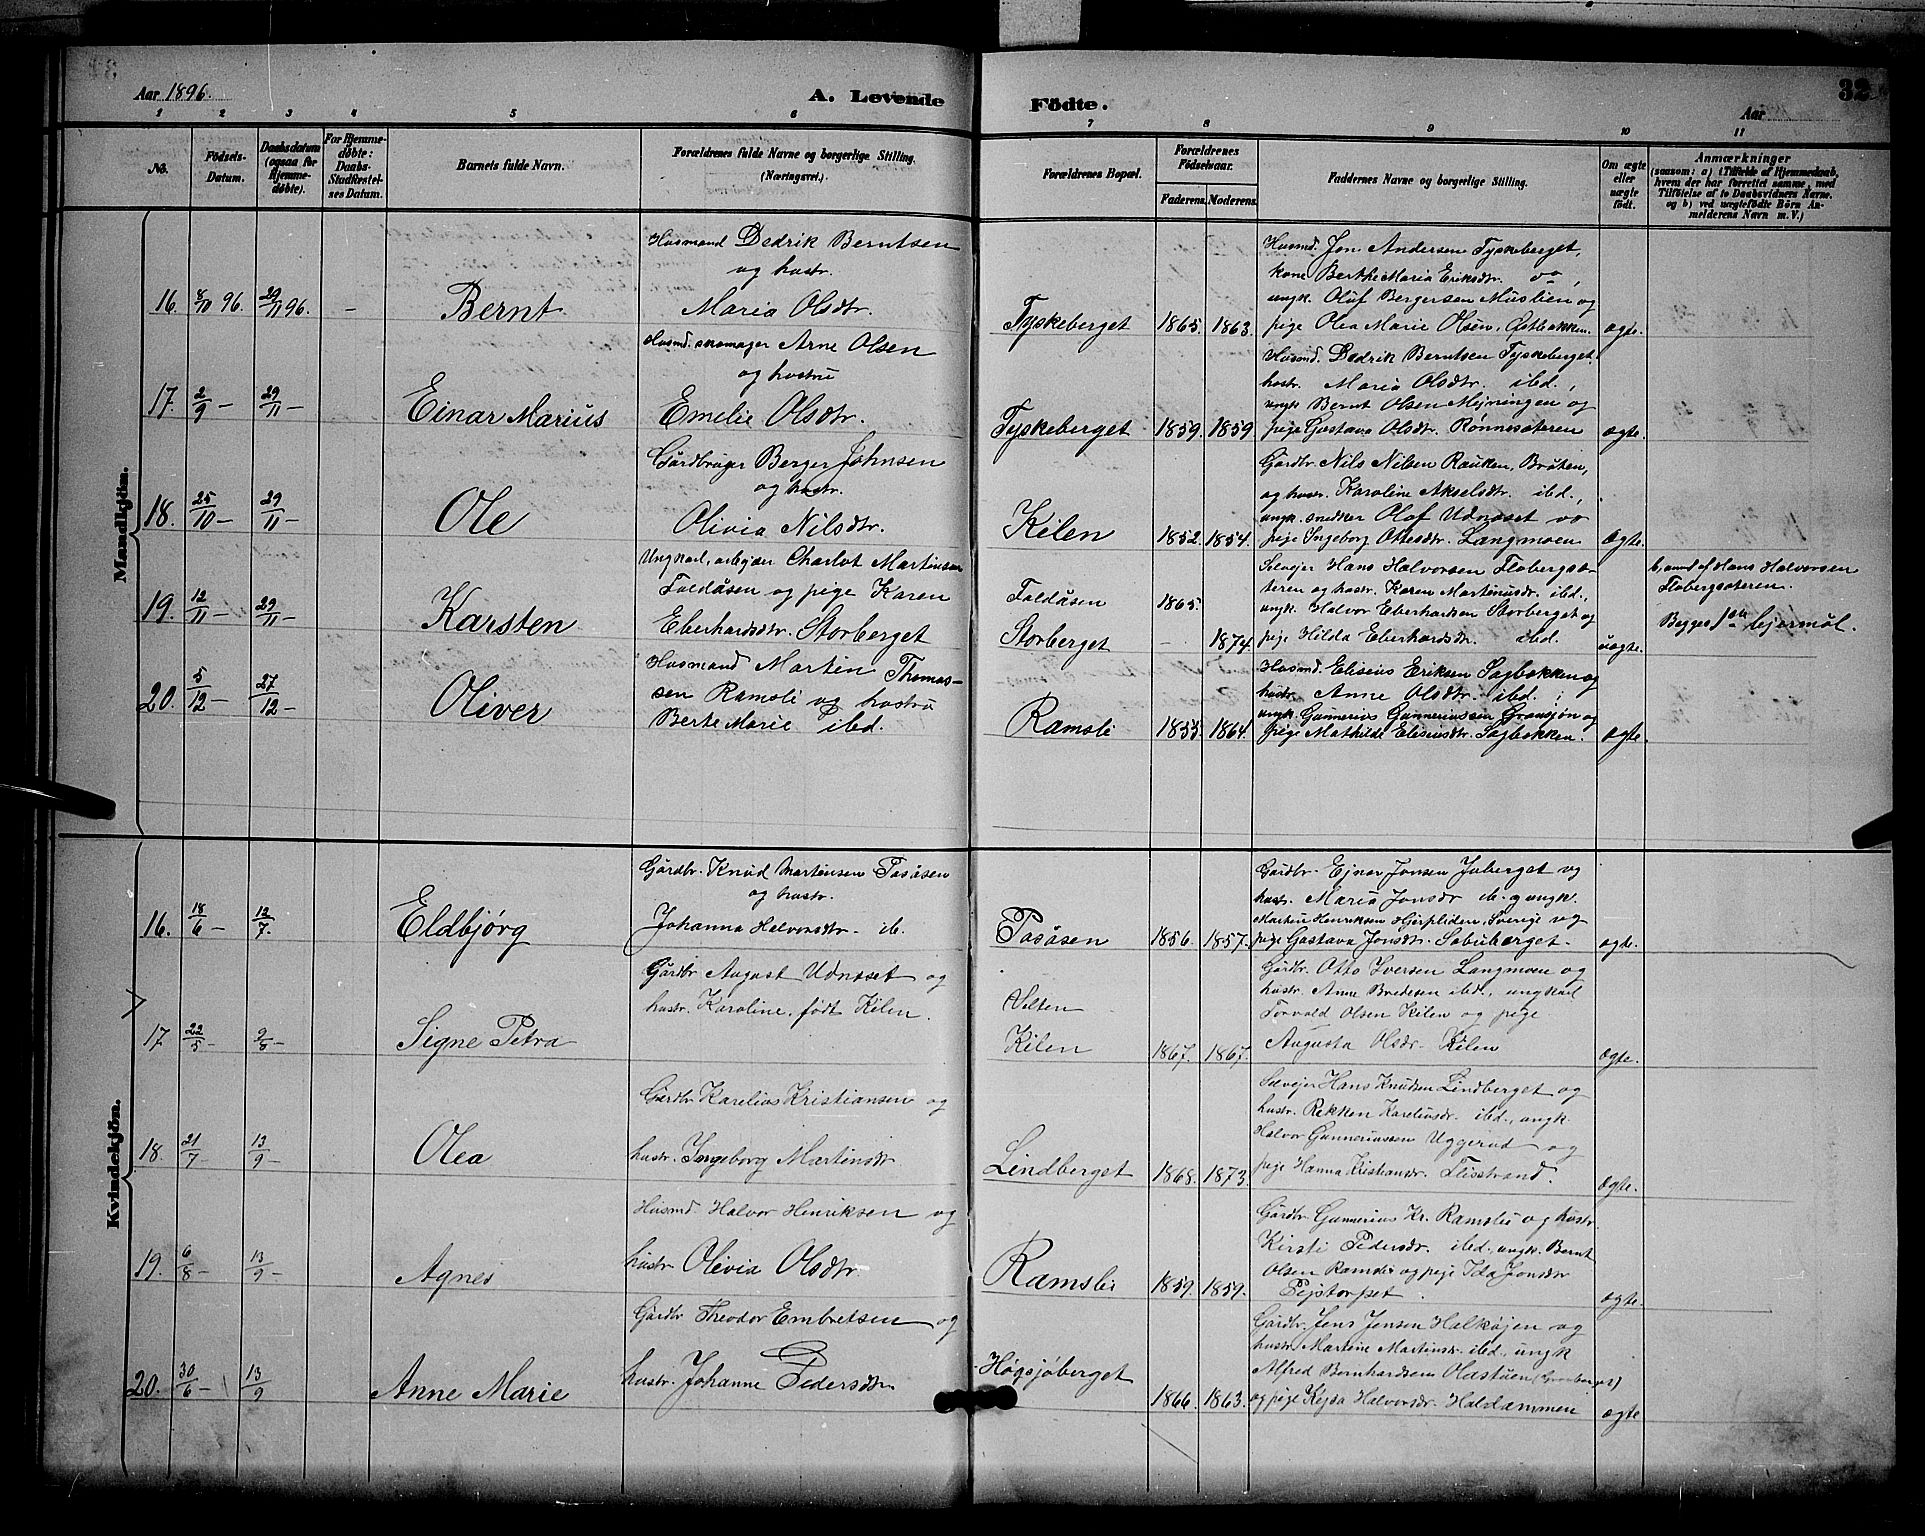 Aar 1896.
A. Levende
Födte.
Aar
32
1 2 3 4 5 6 7 8 9 10 11
No.
Födsels-
Datum.
Daabsdatum
(ogsaa for
Hjemme-
døbte).
For Hjemme-
døbte:
Daabs-
Stadfæstel-
ses Datum.
Barnets fulde Navn.
Forældrenes fulde Navne og borgerlige Stilling.
(Næringsvei.)
Forældrenes Bopæl.
Forældrenes
Födselsaar.
Faderens. Moderens.
Faddernes Navne og borgerlige Stilling.
Om ægte
eller
uægte
født.
Anmærkninger
(saasom: a) i Tilfælde af Hjemmedaab,
hvem der har forrettet samme, med
Tilföielse af to Daabsvidners Navne,
og b) ved uægtefödte Börn An-
melderens Navn m. V.)
Mandkjön.
16. 8/10 96. 29/11 96. -
Bernt
Husmand Dedrik Berntsen
og hustr.
Maria Olsdtr.
Tyskeberget 1865. 1863.
Husmd. Jon Andersen Tyskeberget,
kone Berthe Maria Eriksdtr.
ungk. Oluf Bergersen Muslien og
pige Olea Marie Olsen, Østbakken.
ægte.
17. 2/9 - 29/11 -
Einar Marius
Husmd. skomager Arne Olsen
og hustru
Emelie Olsdtr.
Tyskeberget 1859. 1859
Husmd. Dedrik Berntsen Tyskeberget.
hustr. Maria Olsdtr. ibd.,
ungk Bernt Olsen Mejningen og
pige Gustava Olsdtr. Rönnesæteren
ægte.
18. 25/10 - 29/11 -
Ole
Gårdbruger Berger Johnsen
og hustr.
Olivia Nilsdtr.
Kilen 1852. 1854.
Gårdbr. Nils Nilsen Rauken, Bråten,
og hustr. Karoline Akselsdtr. ibd.,
ungk. snedker Olaf Udnæset
pige Ingeborg Ottesdtr. Langmoen
Ægte.
19. 12/11 - 29/11 -
Karsten
Ungkarl, arbejder Charlot Martinsen
Faldåsen og pige Karen
Eberhardsdtr. Storberget
Faldåsen 1865.
Storberget - 1874.
Selvejer Hans Halvorsen Flobergsæ-
teren og hustr. Karen Martinusdr. ibd.,
ungk. Halvor Eberhardsen Storberget og
pige Hilda Eberhardsdtr. ibd.
uægte.
b, anmd af Hans Halvorsen
Flobergsæteren.
Begges 1ste lejermål.
20. 5/12 - 27/12 -
Oliver
Husmand Martin Thomas-
sen Ramsli og hustru
Berte Marie ibd.
Ramsli 1855. 1864.
Husmd. Elisius Eriksen Sagbakken og
hustr. Anne Olsdtr. ibd.;
ungk. Gunnerius Gunneriussen Gransjön og
pige Mathilde Elisiusdtr. Sagbakken.
ægte.
Kvindekjön.
16. 18/6 - 12/7.
Eldbjörg
Gårdbr. Knud Martinsen Pasåsen
og hustr.
Johanna Halvorsdtr. ib.
Pasåsen 1856. 1857.
Gårdbr. Ejnar Jonsen Juberget og
hustr. Maria Jonsdr. ib. og ungk.
Martin Henriksen Hjerpliden, Sverige og
pige Gustava Jonsdtr. Sabuberget.
ægte.
17 22/5 - 2/8 -
Signe Petra
Gårdbr August Udnæset og
hustr. Karoline, født Kilen.
Velten
Kilen 1867. 1867.
Gårdbr. Otto Iversen Langmoen og
hustr. Anne Bredesen ibd., ungkarl
Torvald Olsen Kilen og pige
Augusta Olsdr. Kilen
Ægte.
18. 21/7 - 13/9 -
Olea
Gårdbr Karelius Kristiansen og
hustr. Ingeborg Martinsdtr
Lindberget 1868. 1873.
Selvejer Hans Knudsen Lindberget og
hustr. Rekken Kareliusdr. ibd., ungk.
Halvor Gunneriussen Uggerud og
pige Hanna Kristiansdr. Flisstrand.
Ægte.
19. 6/8 - 13/9 -
Agnes
Husmd Halvor Henriksen og
hustr Olivia Olsdtr
Ramsli 1859. 1859.
Gårdbr Gunnerius Kr. Ramsli og hustr
Kirsti Pedersdr. ibd., ungk. Bernt
Olsen Ramsli og pige Ida Jonsdtr
Pejstorpet.
ægte.
20. 30/6 - 13/9
Anne Marie
Gårdbr Theodor Embretsen og
hustr. Johanne Pedersdtr
Högsjöberget
1866 1863.
Gårdbr. Jens Jensen Halköjen og
hustr Martine Martinsdr. ibd., ungk
Alfred Bernhardsen Olastuen
og pige Kejsa Halvorsdr. Haldammen
ægte